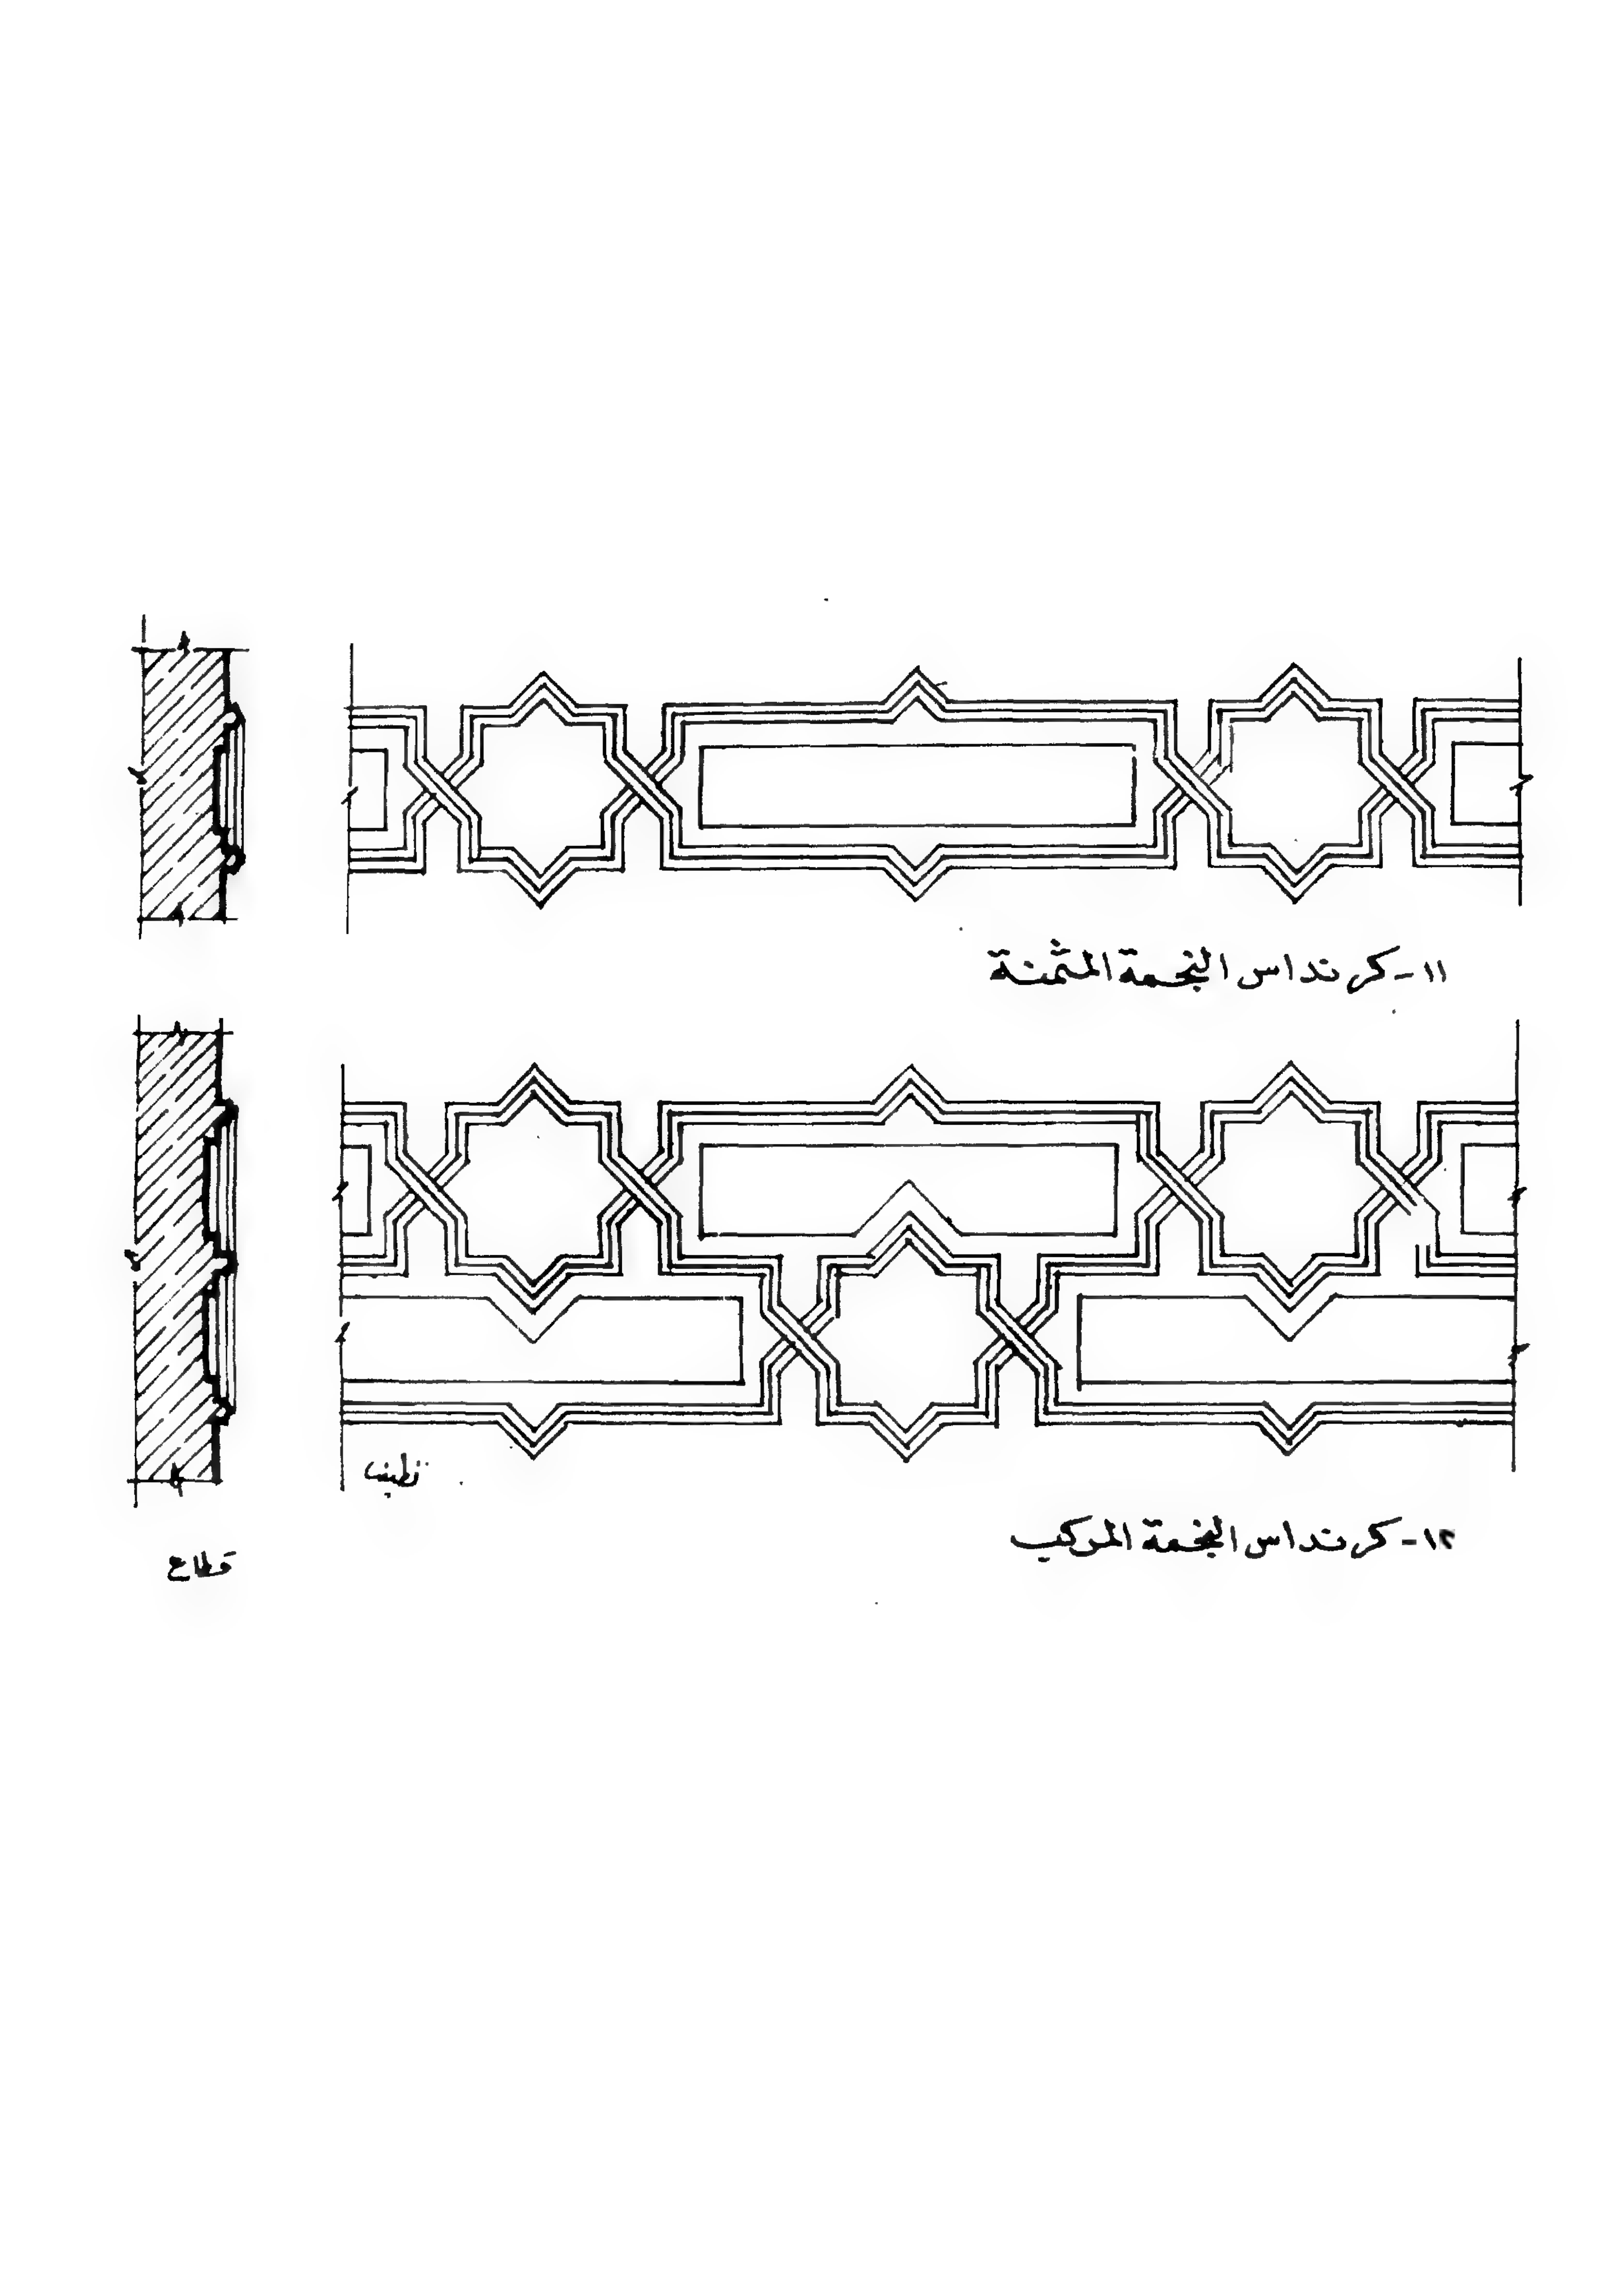 ١١- كرنداس النجمة المثمنة
١٢- كرنداس النجمة المركب
قطاع